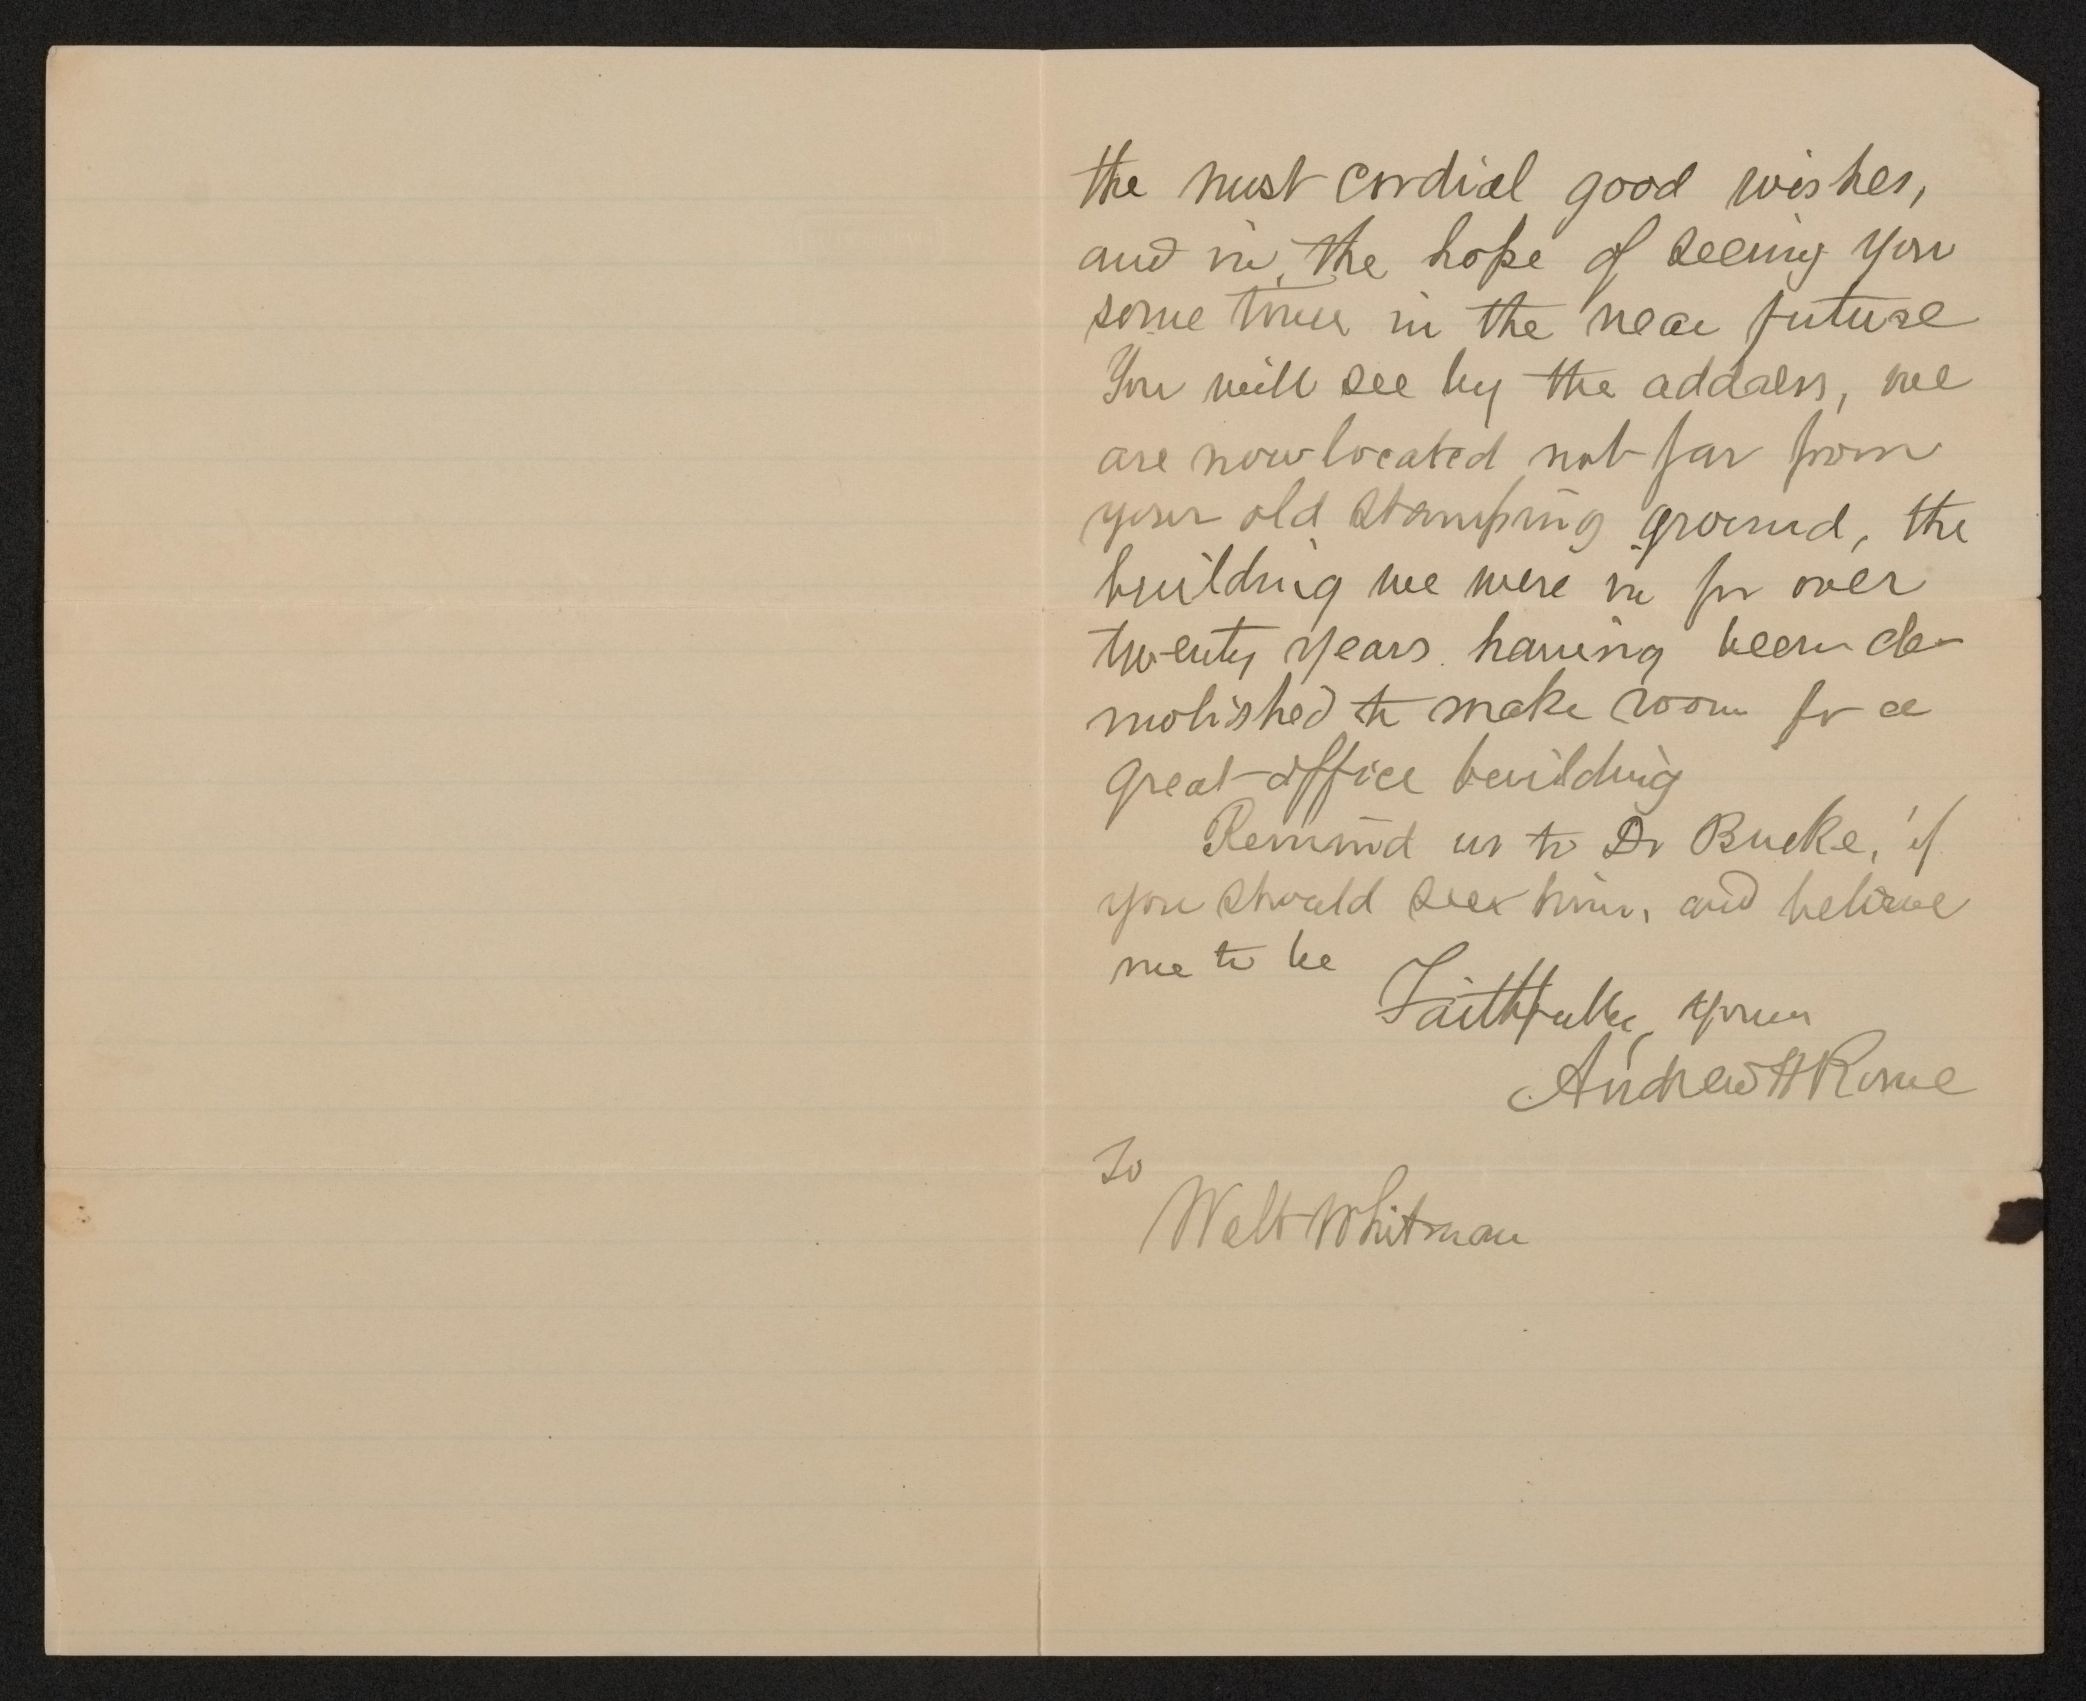 the most cordial good wishes,
and in the hope of seeing you
some time in the near future
You will see by the address, we
are now located not far from
your old stamping ground, the
building we were in for over
twenty years having been de-
molished to make room for a
great office building
Remind us to Dr Bucke, if
you should see him, and believe
me to be
Faithfully yours
Andrew H Rome
To
Walt Whitman